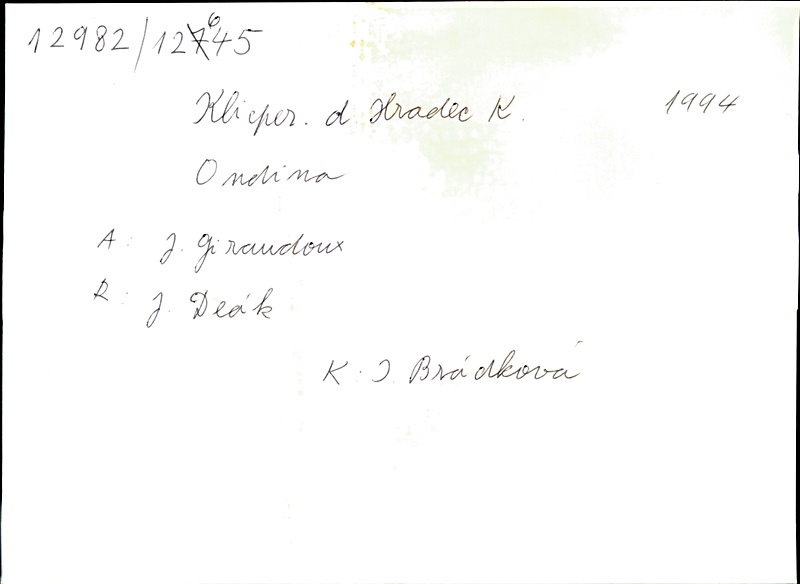 12982/12645
Klicper. d Hradec K. 1994
Ondina
A: J. Giraudoux
R: J. Deák
K: J. Brádková